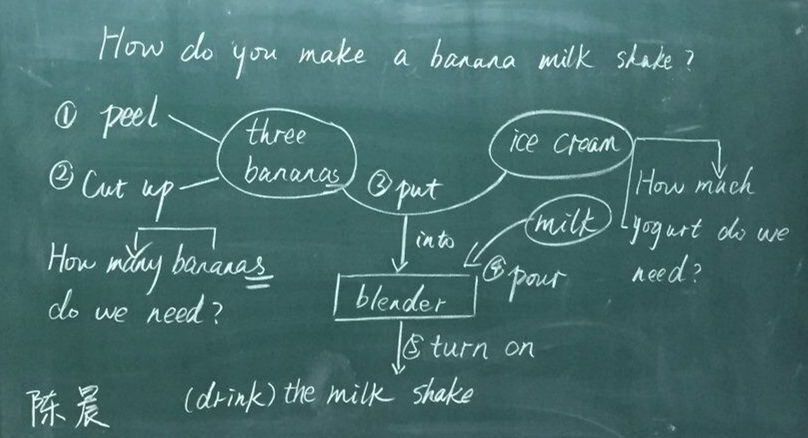 How do you make a banana milk shake?
① peel
② Cut up
three
bananas
③ put
into
ice cream
milk
④ pour
blender
⑤ turn on
(drink) the milk shake
How many bananas
do we need?
How much
yogurt do we
need?
陈晨